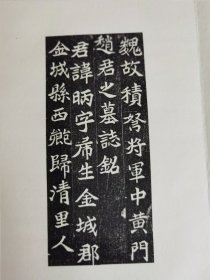 魏故積弩將軍中黃門
趙君之墓誌銘
君諱昞字常生金城郡
金城縣西鄉歸清里人